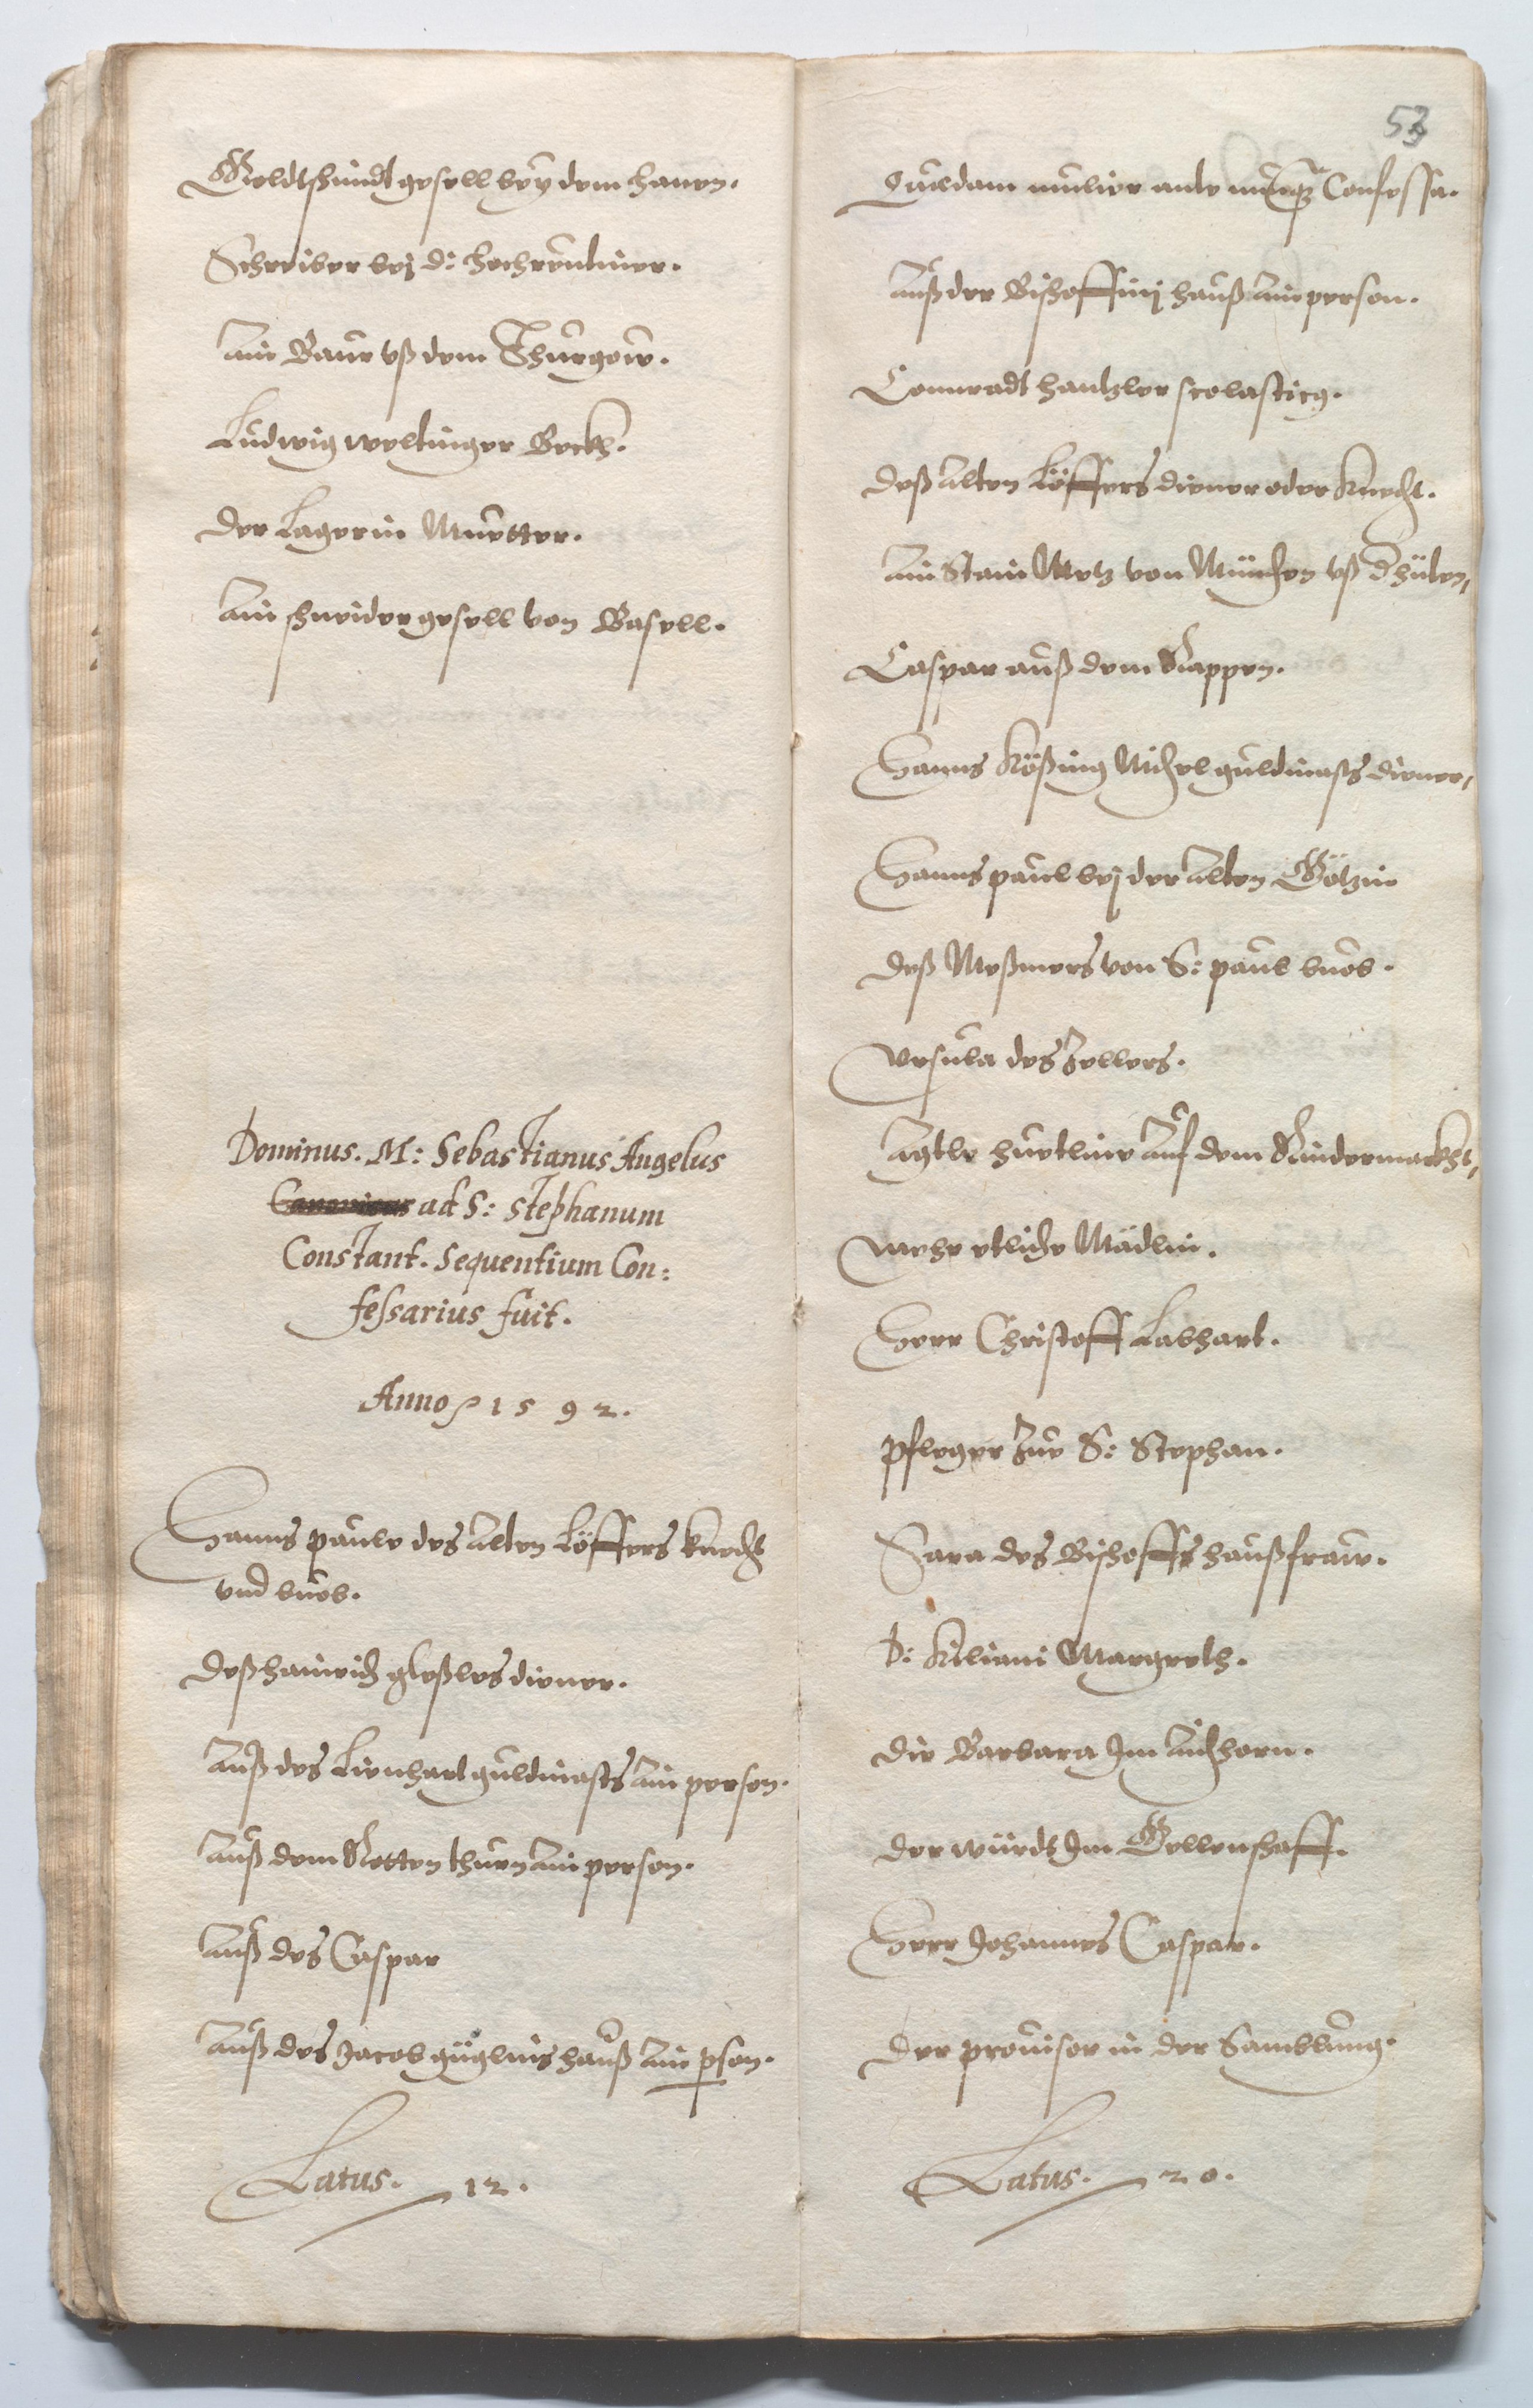 Goldtschmidt gesell bey dem hanen.
Schreiber bej D: hochreutiner.
Ain Baur vß dem Thurgow.
Ludwig weltinger Beckh.
Der Lagerin Muetter.
Ain schneider gesell von Basell.
Dominus. M: Sebastianus Angelus
Canonicus ad S: Stephanum
Constant. Sequentium Con:
fessarius fuit.
Anno 1592.
Hanns paule des Alten Löffers knecht
vnd buob.
Deß hainrich gloßlers diener.
Auß des Lienhart guldinasts ain person.
Auß dem Rotten thurn ain person.
Auß des Caspar
Auß des Jacob güglins hauß ain pson.
Latus. 12.
53
Quædam mulier ante nunq̃ Confessa.
Auß der Bischoffinj hauß ain person.
Connradt hantzler scolasticq.
Deß Alten Löffers diener oder knecht.
Ain Stain Metz von München vß d hüten,
Caspar auß dem Rappen.
Hanns Kößing Michel guldinasts diener,
Hanns paul bej der Alten Götzin
Deß Meßmers von S: paul buob.
Vrsula des Zellers.
Agtle hürtlin Auf dem Rindermarckht,
Mehr etliche Mädlin.
Herr Christoff Labhart.
Pfleger Zue S: Stephan.
Sara des Bischoffs haußfraw.
D: Kiliani Margreth.
Die Barbara Im Aichhorn.
Der würdt Im Gellenschaff.
Herr Johannes Caspar.
Der prouisor in der Samblung.
Latus. 20.